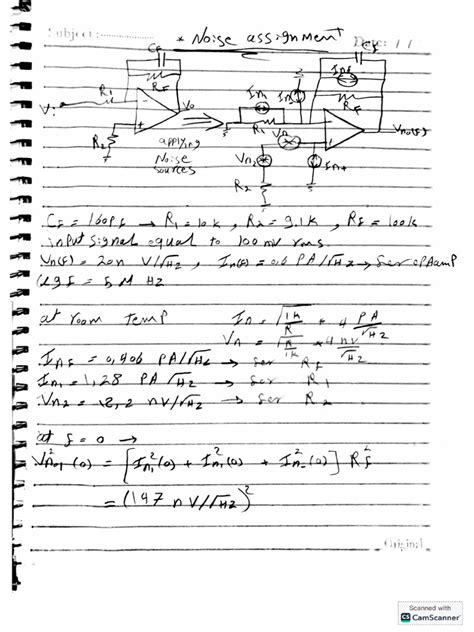 Subject:
* Noise assignment
Date: / /
CF
CF
InF
R1
RF
In1
In-
RF
V
Vo
R1
Vno(F)
R2
applying
Noise
sources
Vn
Vn2
In+
R2
CF = 160 PF → R1 = 10k , R2 = 9.1k , RF = 100k
input signal equal to 100 mV rms
Vn(F) = 20n V/√Hz , In(F) = 0,6 PA/√Hz → for opamp
= 5 M Hz
at room temp In = √1k/R * 4 PA/√Hz
Vn = √R/1k * 4 nV/√Hz
InF = 0,406 PA/√Hz → for RF
In1 = 1,28 PA/√Hz → for R1
Vn2 = 12,2 nV/√Hz → for R2
at F = 0 →
Vno1²(0) = [In1²(0) + InF²(0) + In-²(0)] RF²
= (147 nV/√Hz)²
Original
Scanned with
CS CamScanner